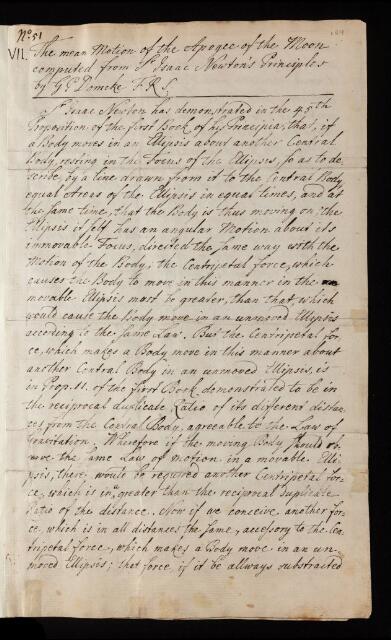 No. 51
VII.
The mean Motion of the Apogee of the Moon
computed from Sr. Isaac Newton's Principles
by G: Domcke F.R.S.
Sr. Isaac Newton has demonstrated in the 45th
Proposition of the first Book of his Principia, that, if
a Body moves in an Ellipsis about another Central
Body, resting in the Focus of the Ellipsis, so as to de-
scribe by a line drawn from it to the Central Body
equal Areas of the Ellipsis in equal times, and at
the same time, that the Body is thus moving on the
Ellipsis it self has an angular Motion about its
immovable Focus, directed the same way with the
Motion of the Body, the Centripetal force, which
causes the Body to move in this manner in the
movable Ellipsis most be greater, than that, which
would cause the Body move in an unmoved Ellipsis
according to the same Law. But the Centripetal for-
ce, which makes a Body move in this manner about
another Central Body in an unmoved Ellipsis, is
in Prop. 11. of the first Book demonstrated to be in
the reciprocal duplicate Ratio of its different distan-
ces from the Central Body, agreeable to the Law of
Gravitation. Wherefore if the moving Body should ob-
serve the same Law of motion in a movable Elli-
psis, there would be required another Centripetal for-
ce, which is in a greater than the reciprocal duplicate
Ratio of the distance. Now if we conceive another for-
ce, which is in all distances the same, accessory to the Cen-
tripetal force, which makes a Body move in an un-
moved Ellipsis; that force, if it be allways substracted